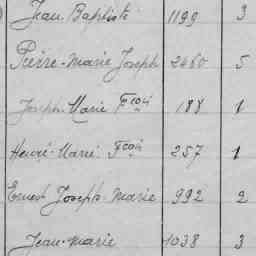 Jean Baptiste 1199 3
Pierre-Marie Joseph 2460 5
Joseph-Marie Fçois 188 1
Henri-Marie Fçois 257 1
Ernest Joseph-Marie 992 2
Jean-Marie 1038 3